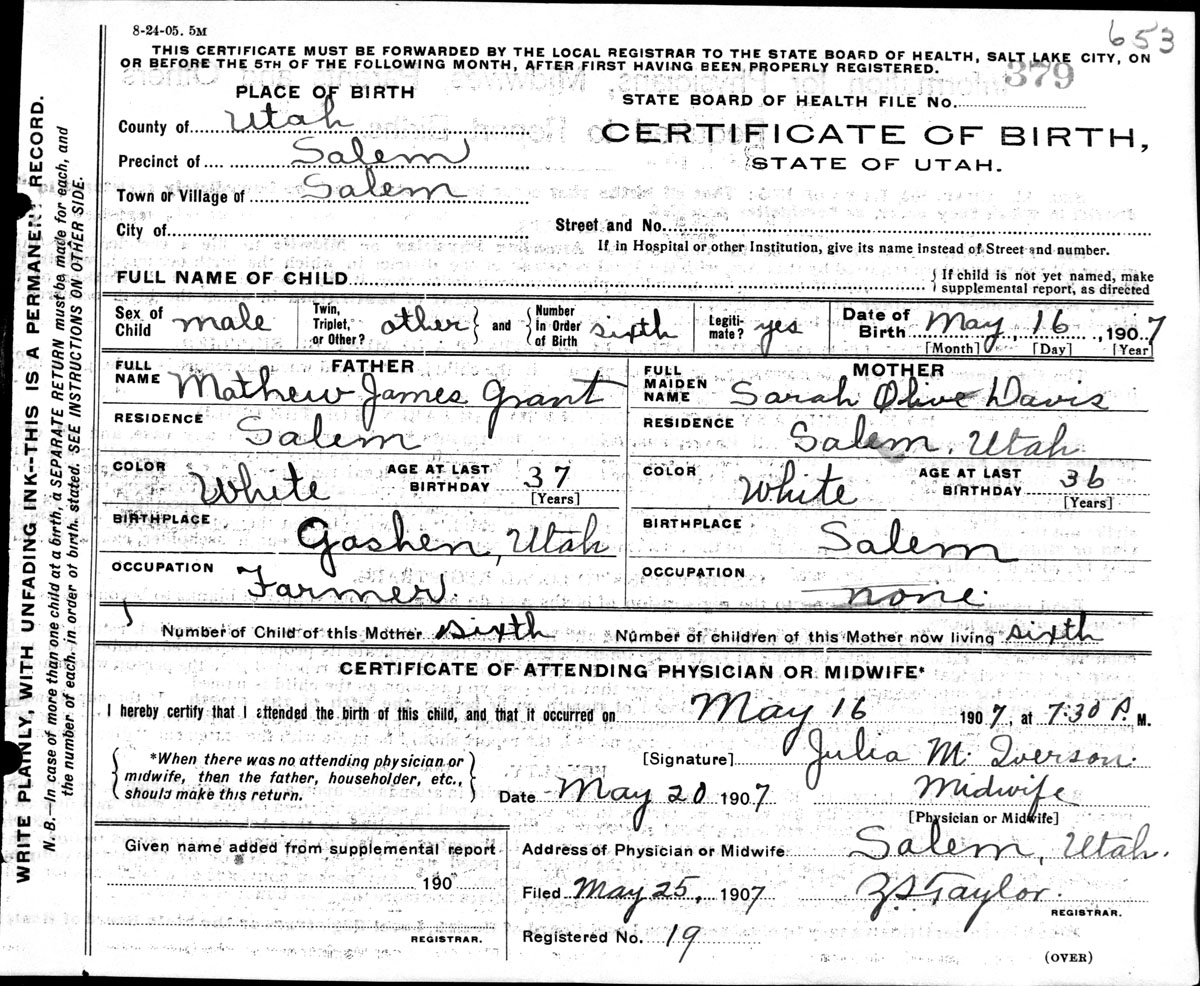 653
8-24-05. 5M
THIS CERTIFICATE MUST BE FORWARDED BY THE LOCAL REGISTRAR TO THE STATE BOARD OF HEALTH, SALT LAKE CITY, ON
OR BEFORE THE 5TH OF THE FOLLOWING MONTH, AFTER FIRST HAVING BEEN PROPERLY REGISTERED.
379
PLACE OF BIRTH
STATE BOARD OF HEALTH FILE No.
County of Utah
CERTIFICATE OF BIRTH,
STATE OF UTAH.
Precinct of Salem
Town or Village of Salem
City of
Street and No.
If in Hospital or other Institution, give its name instead of Street and number.
FULL NAME OF CHILD
{ If child is not yet named, make
supplemental report, as directed
Sex of Child male
Twin, Triplet, or Other? other } and { Number in Order of Birth sixth
Legiti-mate? yes
Date of Birth May 16, 1907
[Month] [Day] [Year]
FATHER
FULL NAME Mathew James Grant
RESIDENCE Salem
COLOR White AGE AT LAST BIRTHDAY 37 [Years]
BIRTHPLACE Goshen, Utah
OCCUPATION Farmer.
MOTHER
FULL MAIDEN NAME Sarah Olive Davis
RESIDENCE Salem, Utah
COLOR White AGE AT LAST BIRTHDAY 36 [Years]
BIRTHPLACE Salem
OCCUPATION none.
Number of Child of this Mother sixth Number of children of this Mother now living sixth
CERTIFICATE OF ATTENDING PHYSICIAN OR MIDWIFE*
I hereby certify that I attended the birth of this child, and that it occurred on May 16 1907, at 7:30 P. M.
{ *When there was no attending physician or
midwife, then the father, householder, etc.,
should make this return. }
[Signature] Julia M. Iverson.
Date May 20 1907 Midwife
[Physician or Midwife]
Given name added from supplemental report
190
REGISTRAR.
Address of Physician or Midwife Salem, Utah.
Filed May 25, 1907 Z S Taylor.
REGISTRAR.
Registered No. 19
(OVER)
WRITE PLAINLY, WITH UNFADING INK--THIS IS A PERMANENT RECORD.
N. B.—In case of more than one child at a birth, a SEPARATE RETURN must be made for each, and
the number of each, in order of birth, stated. SEE INSTRUCTIONS ON OTHER SIDE.